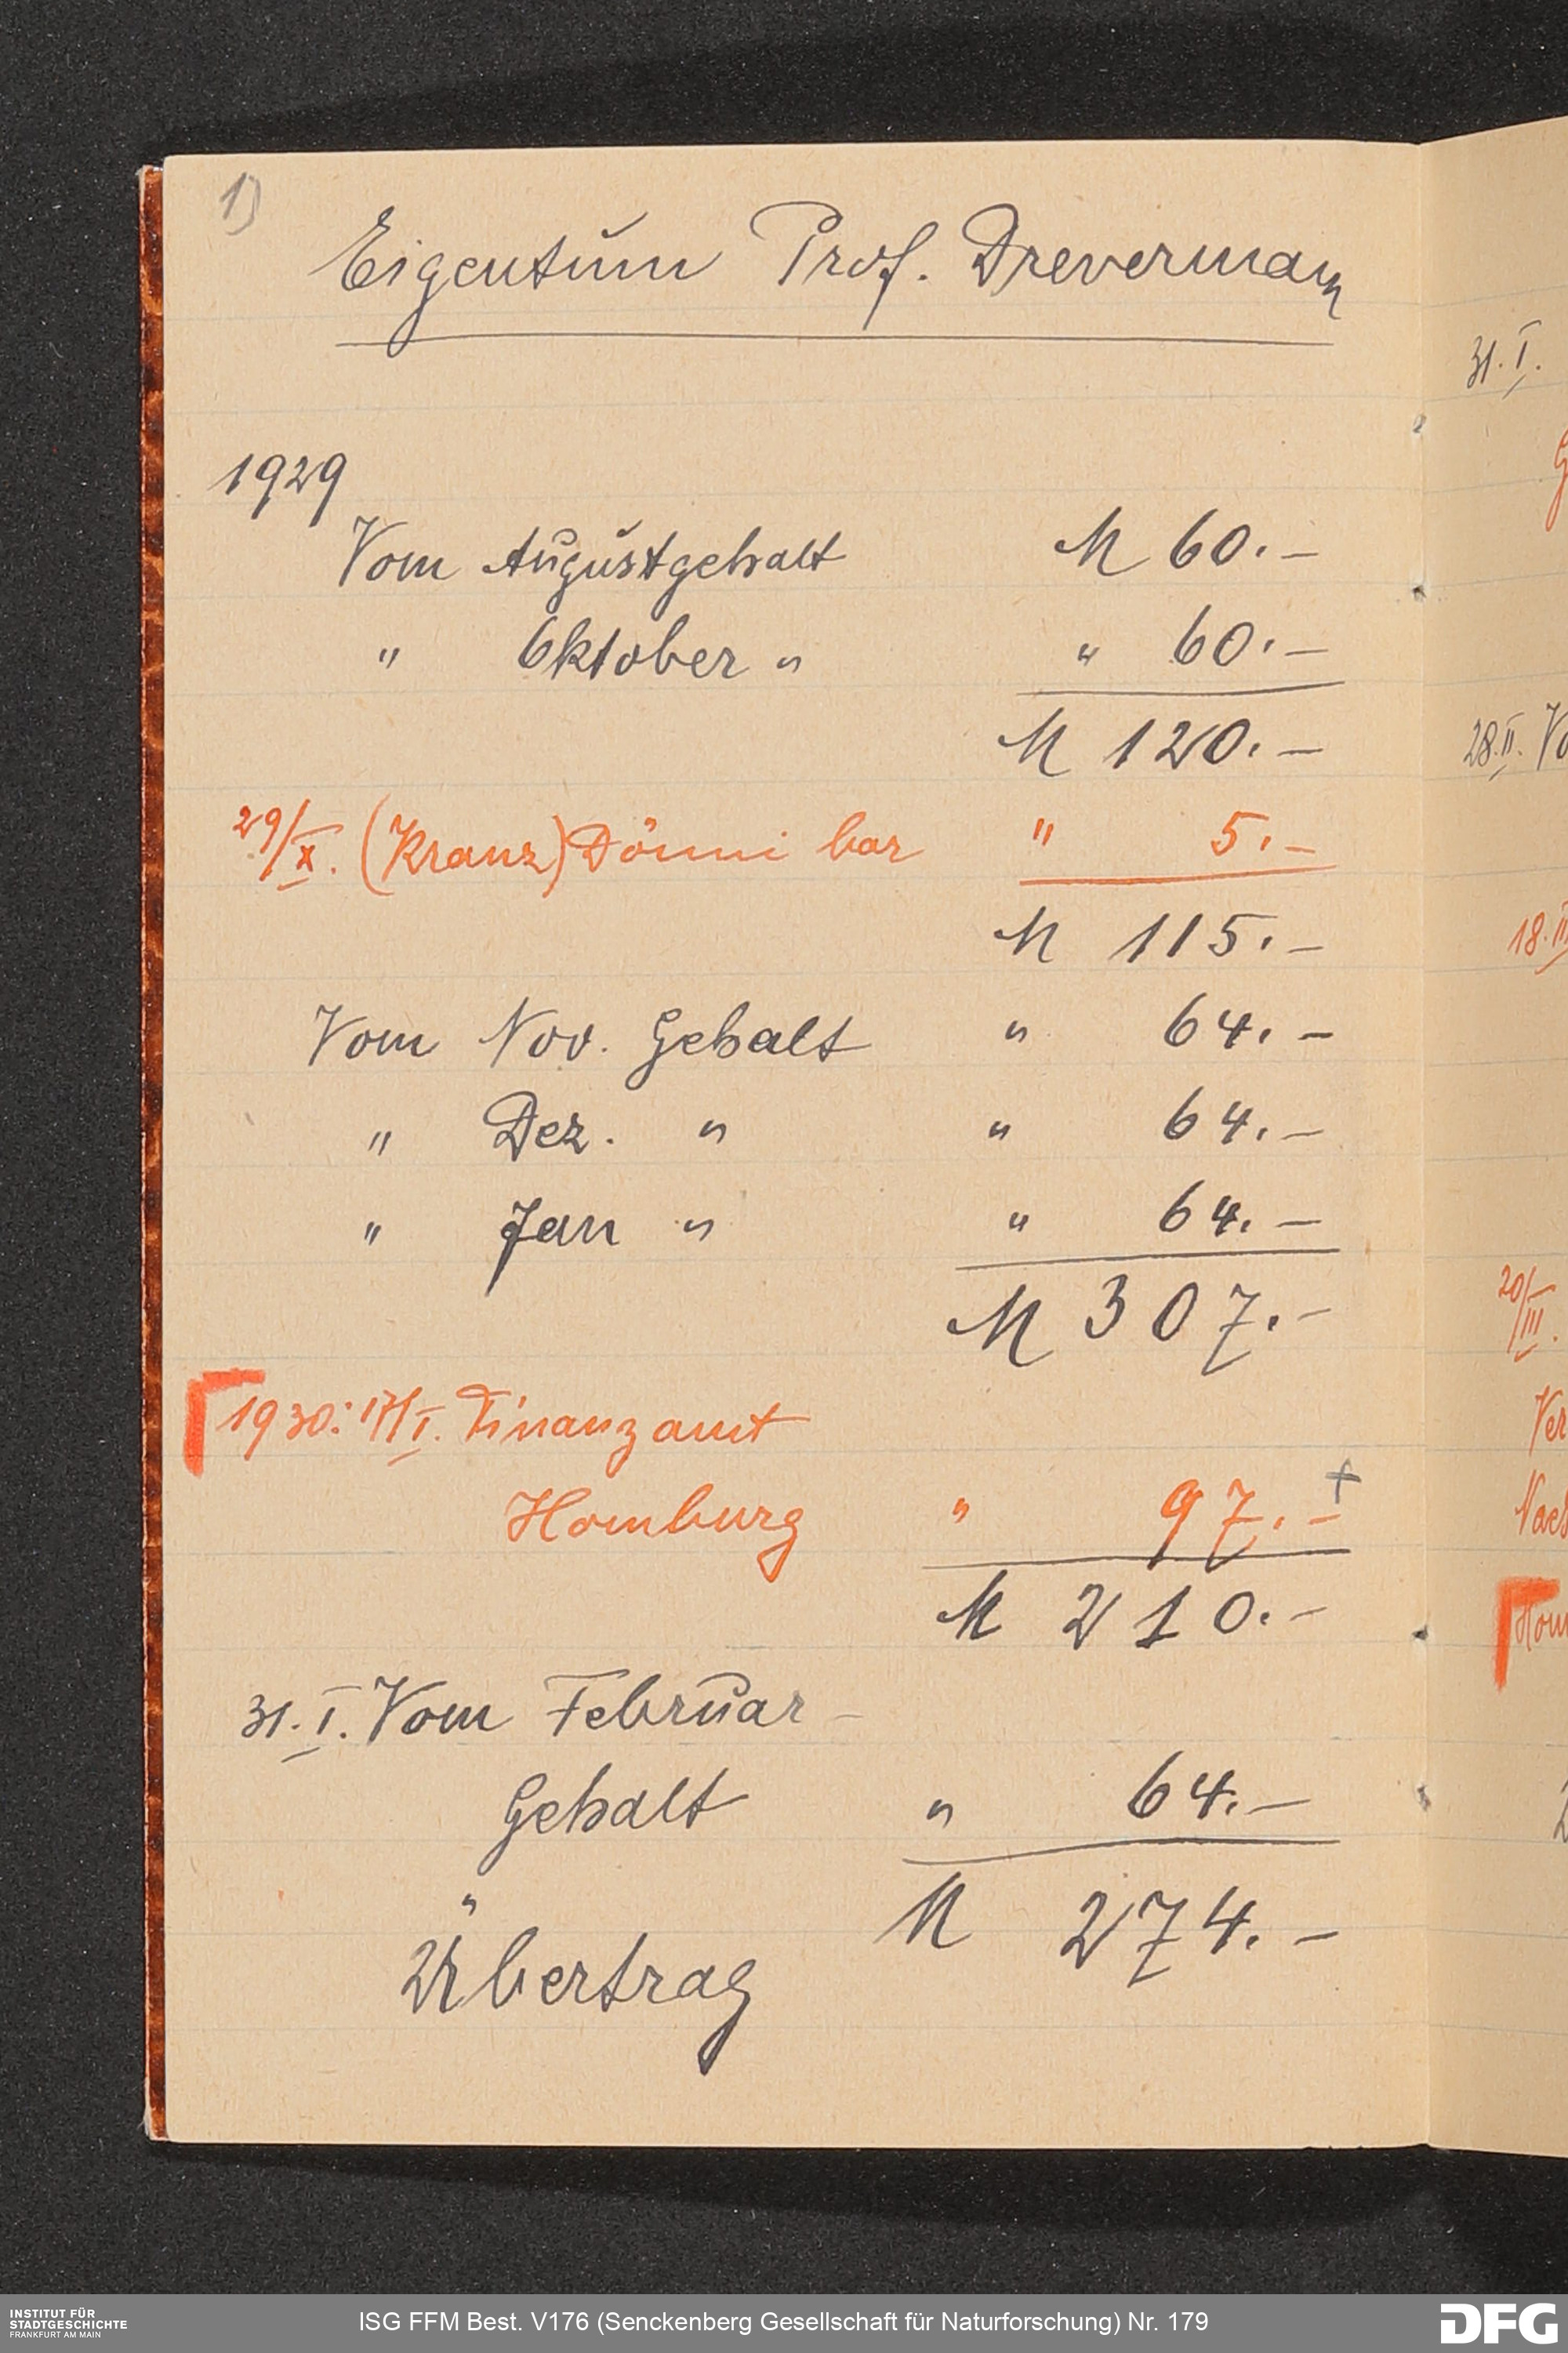 1)
Eigentum Prof. Drevermann
1929
Vom Augustgehalt M 60.–
" Oktober " " 60.–
M 120.–
29/X. (Kranz) Dönni bar " 5.–
M 115.–
Vom Nov. Gehalt " 64.–
" Dez. " " 64.–
" Jan " " 64.–
M 307.–
1930: 17/I. Finanzamt
Homburg " 97.– +
M 210.–
31.I. Vom Februar-
Gehalt " 64.–
M 274.–
Übertrag
31.I.
G
28.II. Vo
18.II
20/III.
Ver
Nach
Hom
INSTITUT FÜR
STADTGESCHICHTE
FRANKFURT AM MAIN
ISG FFM Best. V176 (Senckenberg Gesellschaft für Naturforschung) Nr. 179
DFG